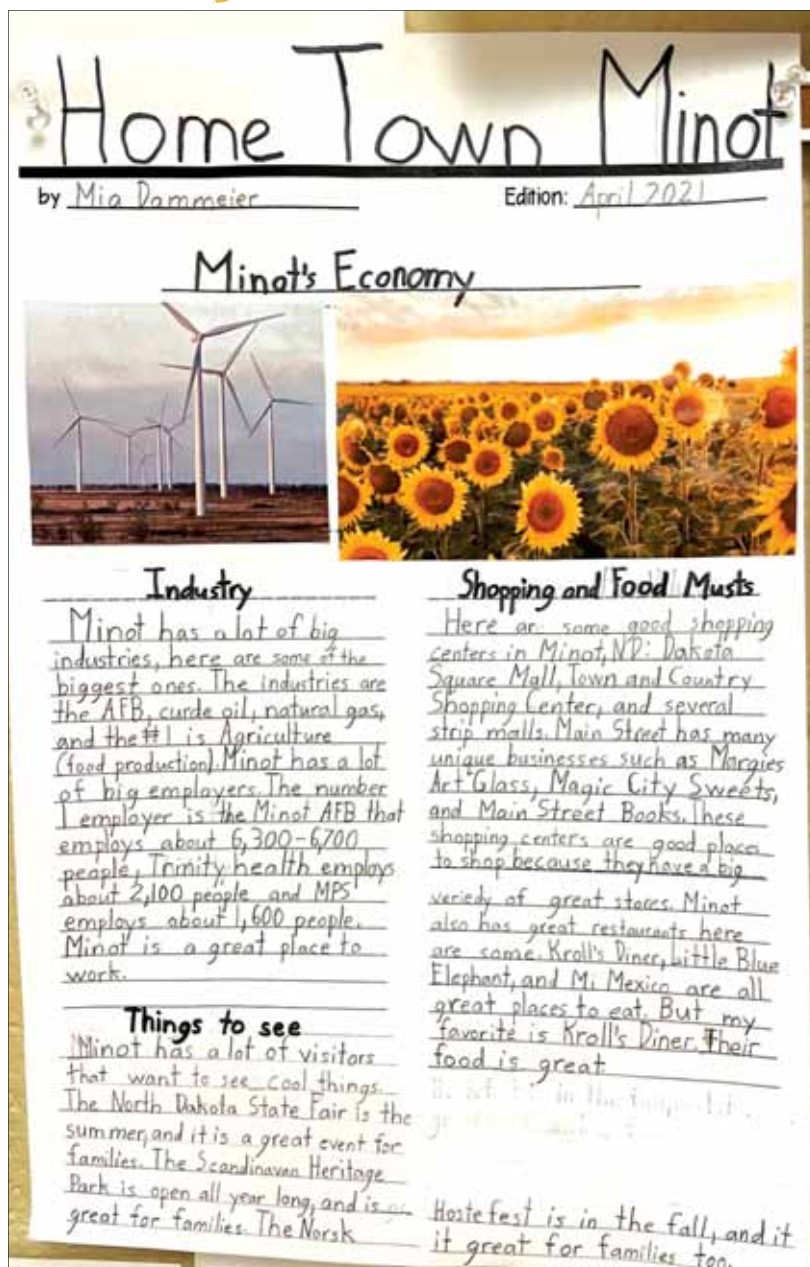 Home Town Minot
by Mia Dammeier
Edition: April 2021
Minot's Economy
Industry
Minot has a lot of big
industries, here are some of the
biggest ones. The industries are
the AFB, curde oil, natural gas,
and the #1 is Agriculture
(food production). Minot has a lot
of big employers. The number
1 employer is the Minot AFB that
employs about 6,300-6,700
people, Trinity health employs
about 2,100 people and MPS
employs about 1,600 people.
Minot is a great place to
work.
Things to see
Minot has a lot of visitors
that want to see cool things.
The North Dakota State Fair is the
summer, and it is a great event for
families. The Scandinavan Heritage
Park is open all year long, and is
great for families. The Norsk
Shopping and Food Musts
Here are some good shopping
centers in Minot, ND: Dakota
Square Mall, Town and Country
Shopping Center, and several
strip malls. Main Street has many
unique businesses such as Margies
Art Glass, Magic City Sweets,
and Main Street Books. These
shopping centers are good places
to shop because they have a big
veriedy of great stores. Minot
also has great restaurants here
are some. Kroll's Diner, Little Blue
Elephant, and Mi Mexico are all
great places to eat. But my
favorite is Kroll's Diner. Their
food is great
Hostefest is in the fall, and it
it great for families too.